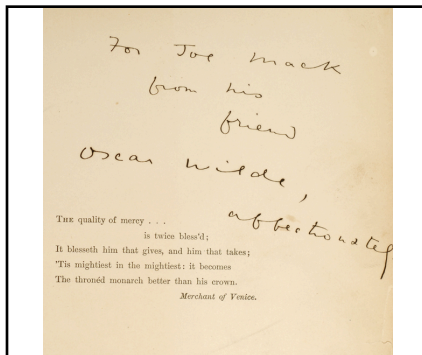 For Joe Mack
from his
friend
Oscar Wilde,
affectionately
THE quality of mercy . . .
is twice bless'd;
It blesseth him that gives, and him that takes;
'Tis mightiest in the mightiest: it becomes
The thronéd monarch better than his crown.
Merchant of Venice.